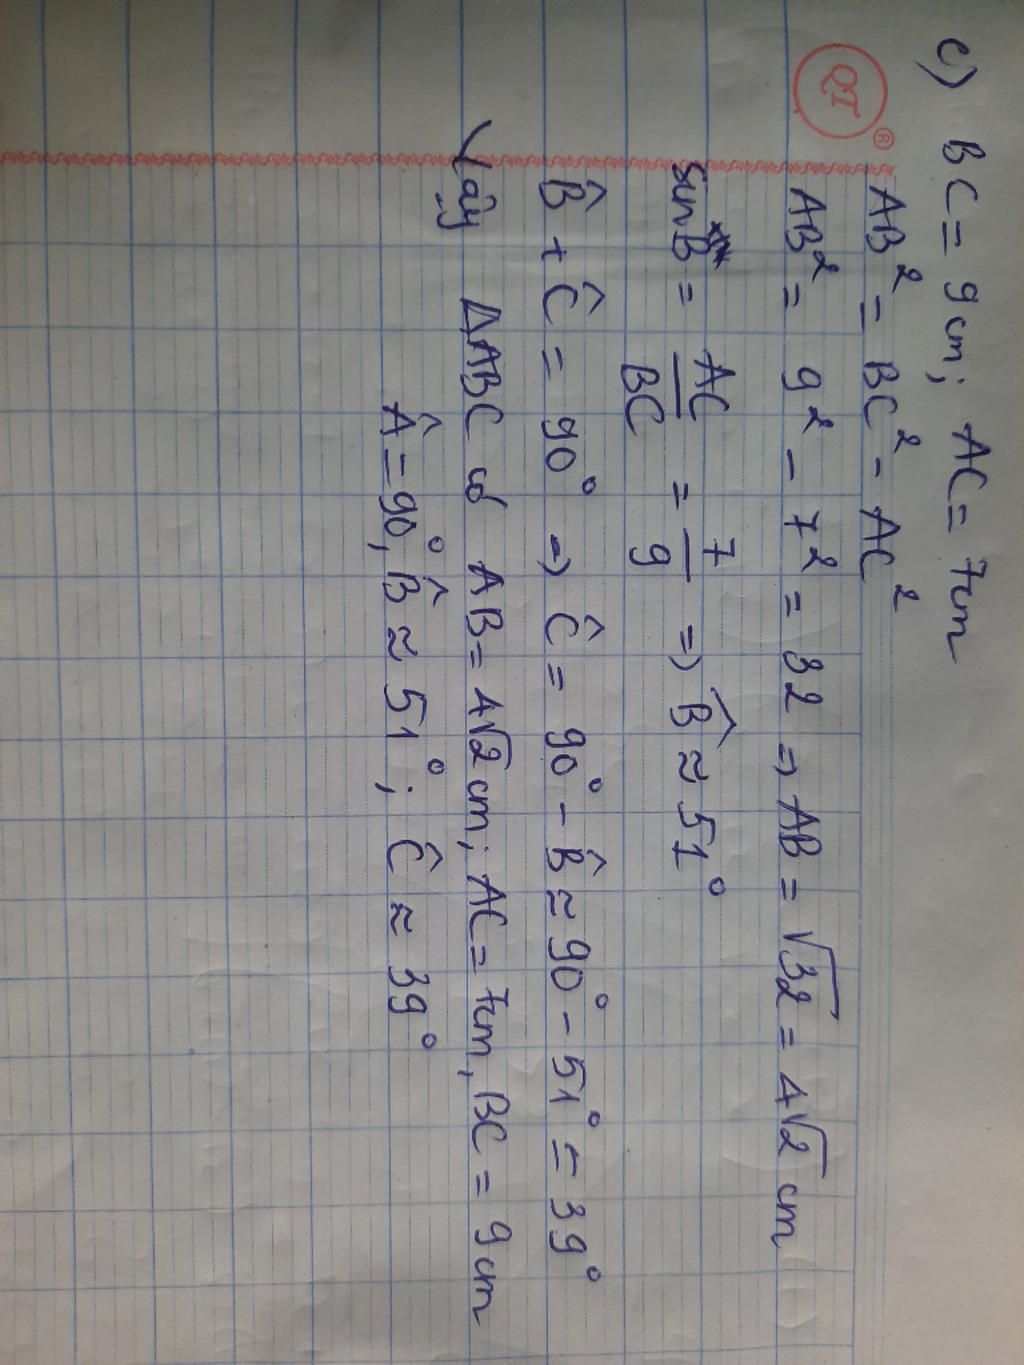 c) BC = 9cm; AC = 7cm
QT ®
AB² = BC² - AC²
AB² = 9² - 7² = 32 => AB = √32 = 4√2 cm
sin B = AC/BC = 7/9 => B̂ ≈ 51°
B̂ + Ĉ = 90° => Ĉ = 90° - B̂ ≈ 90° - 51° = 39°
Vậy ΔABC có AB = 4√2 cm; AC = 7cm, BC = 9cm
Â = 90°, B̂ ≈ 51°; Ĉ ≈ 39°